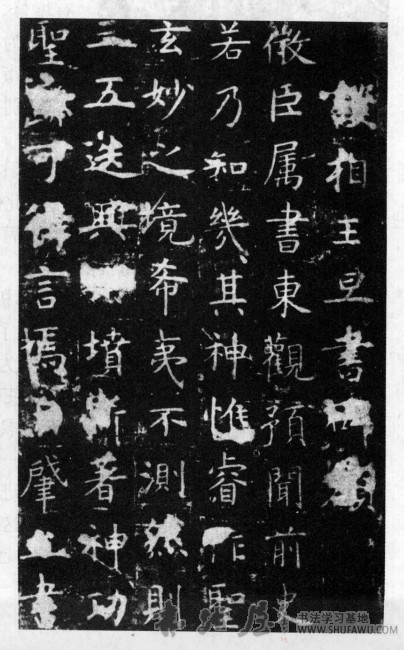 相王旦書碑額
微臣属書東觀預聞前史
若乃知幾其神惟睿作聖
玄妙之境希夷不測然則
三五迭興墳斯著神功
聖可得言焉肇立書
书法学习基地
WWW.SHUFAWU.COM